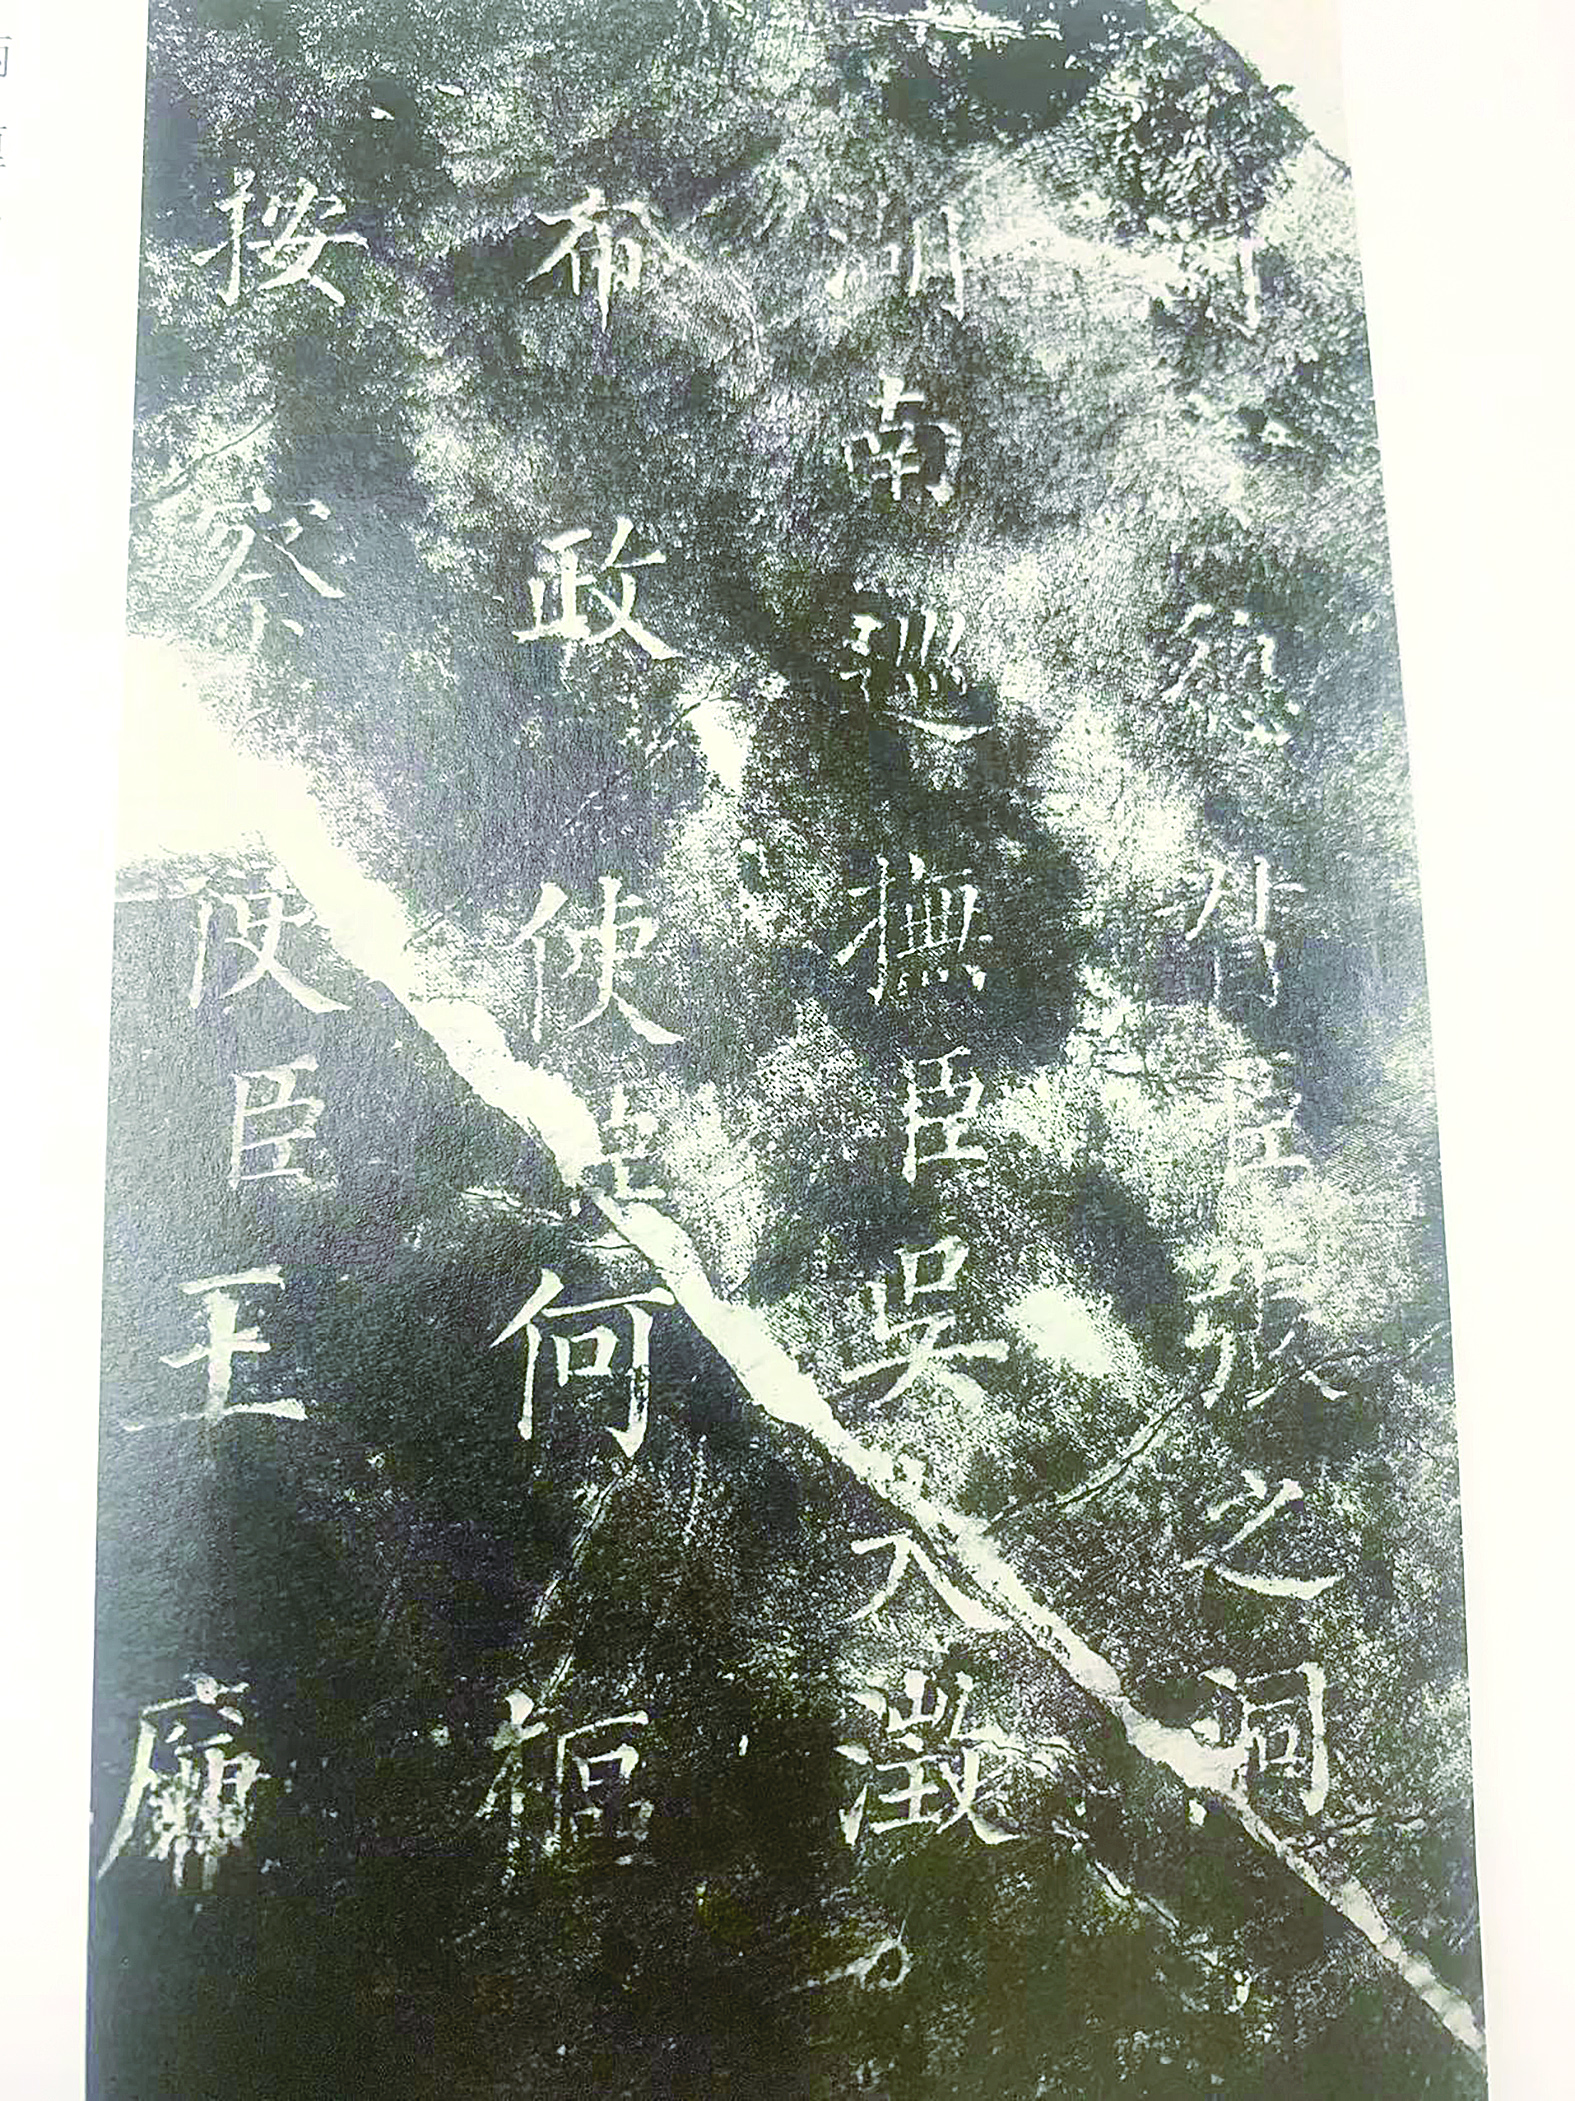 總督臣張之洞
湖南巡撫臣吳大澂
布政使臣何樞
按察使臣王廉